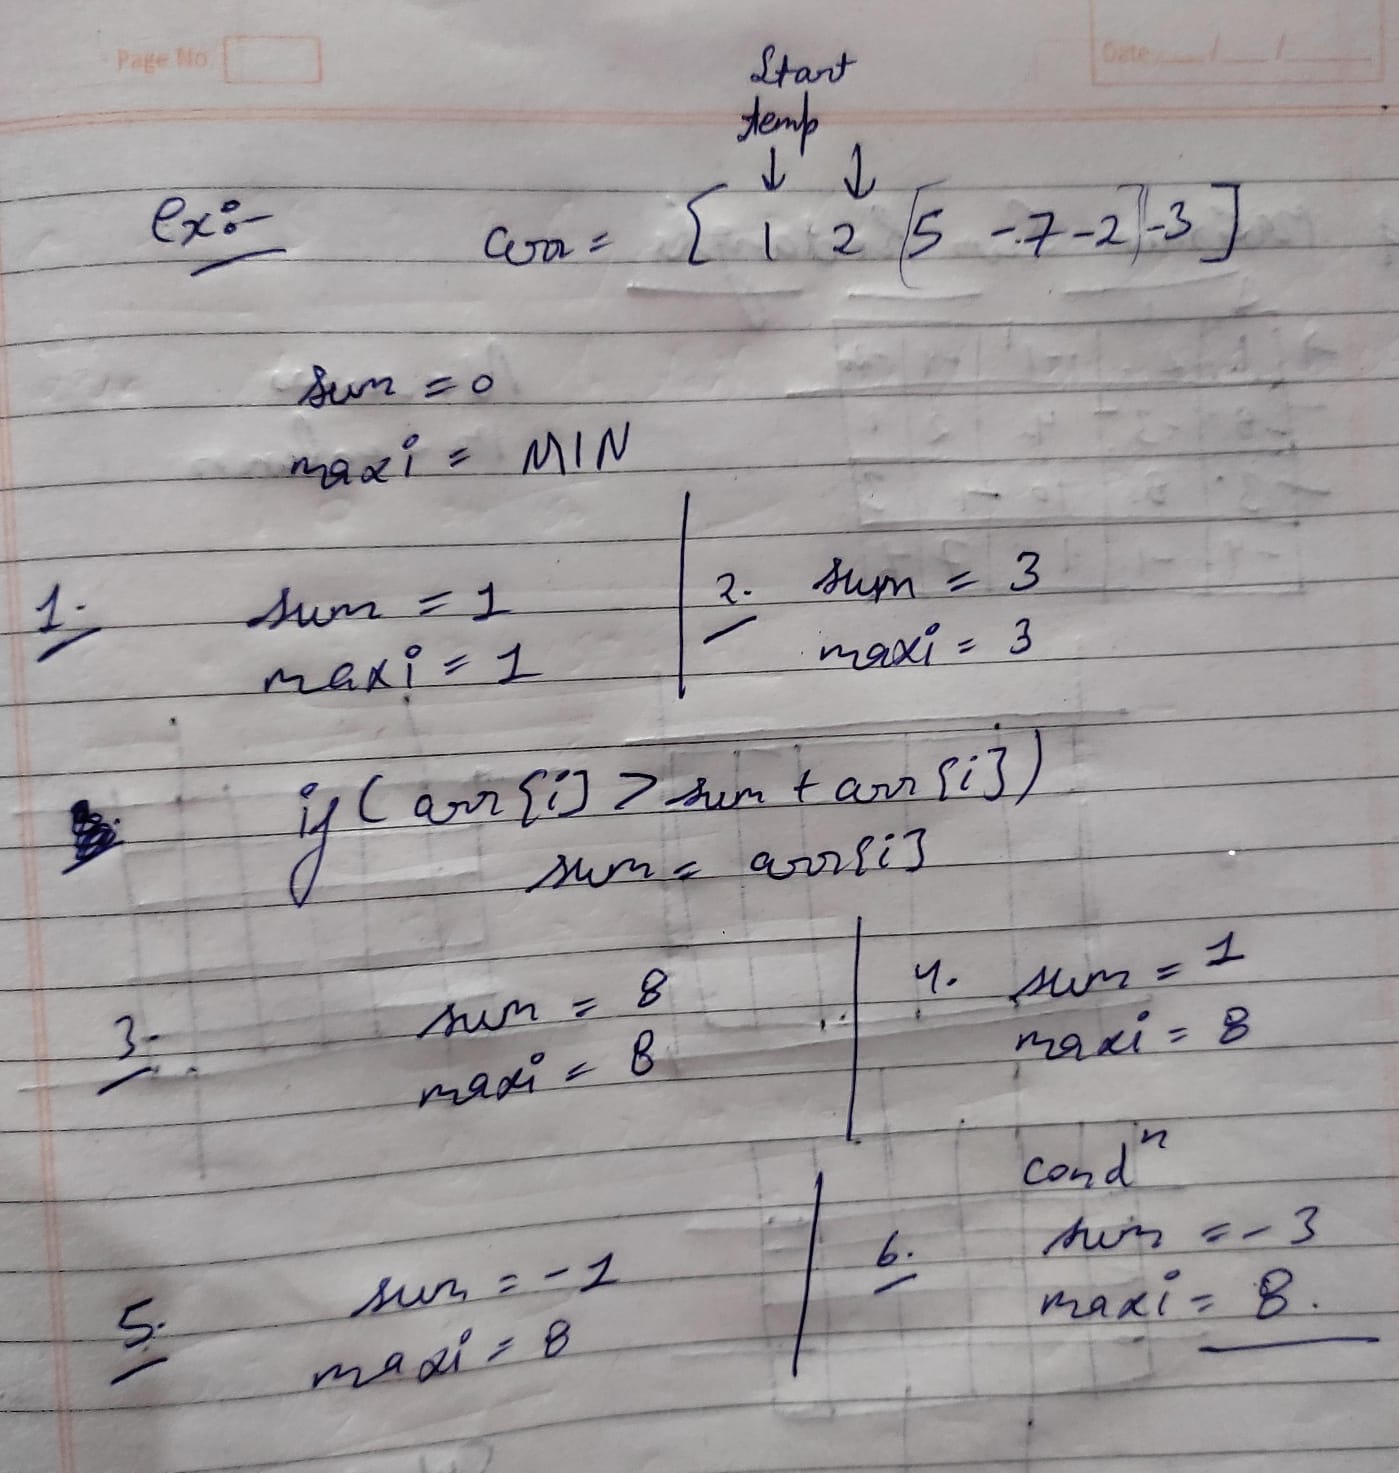 Page No
Date / /
Start
temp
↓ ↓
ex:-
arr = [ 1 2 [5 -7 -2] -3 ]
sum = 0
maxi = MIN
1. sum = 1
maxi = 1
2. sum = 3
maxi = 3
if ( arr[i] > sum + arr[i])
sum = arr[i]
3. sum = 8
maxi = 8
4. sum = 1
maxi = 8
5. sum = -1
maxi = 8
6. condⁿ
sum = -3
maxi = 8.